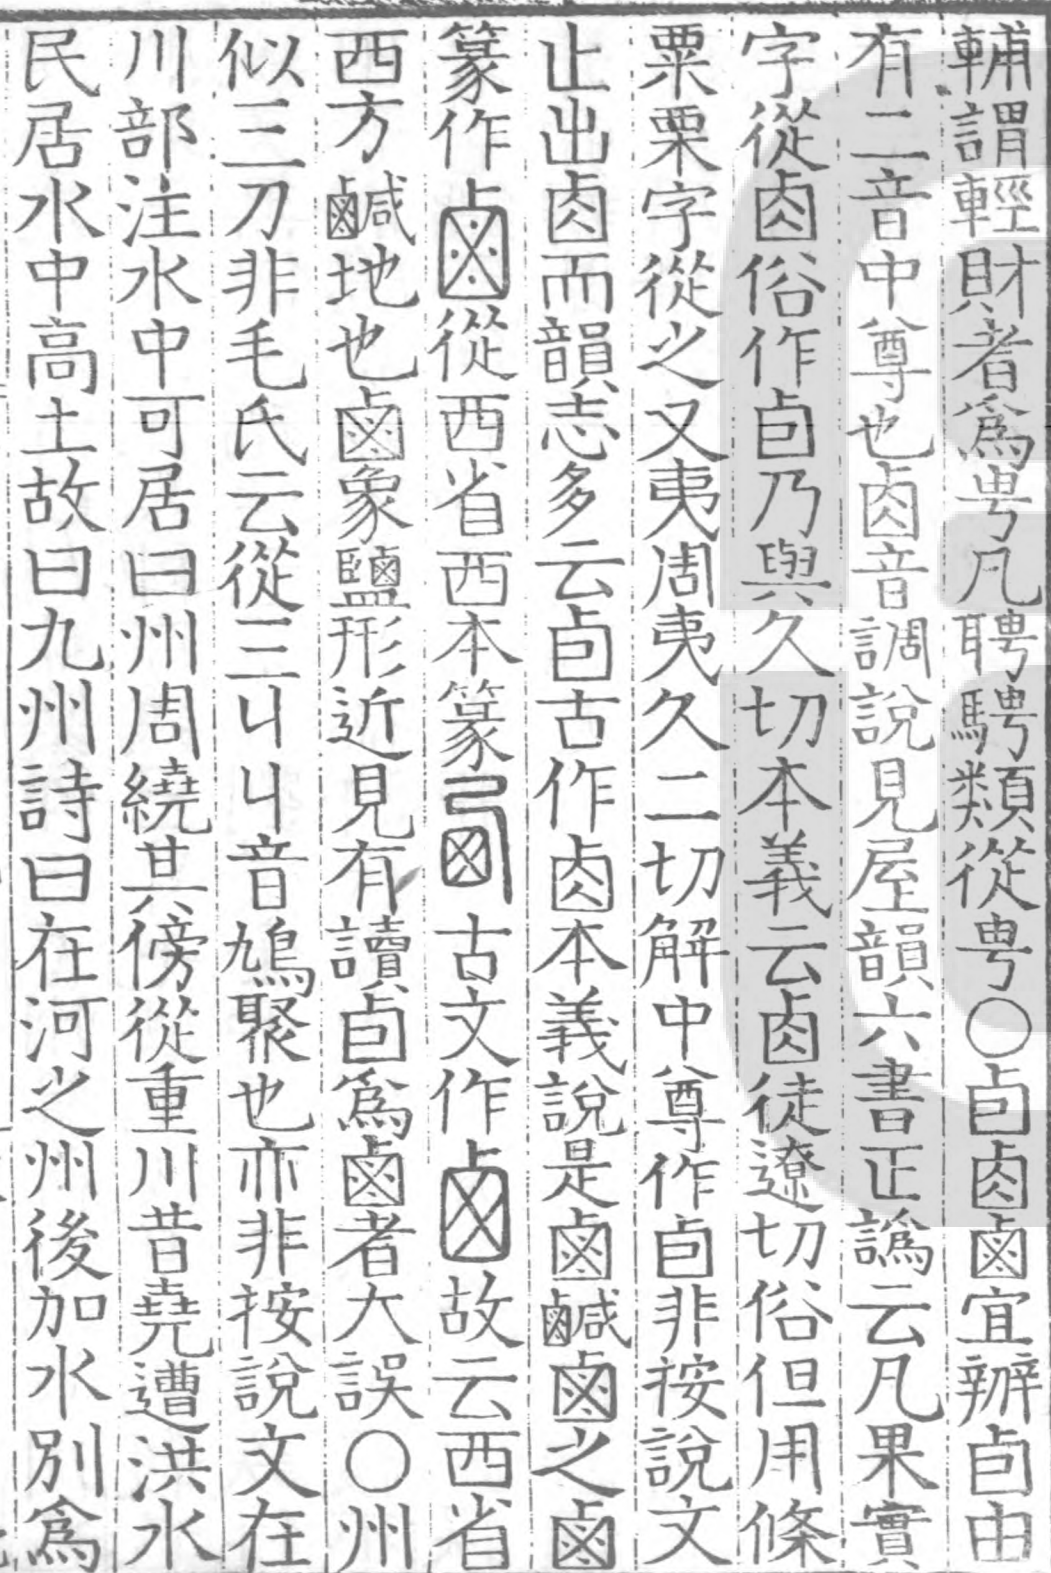 輔謂輕財者爲甹凡聘騁類從甹○卣卤鹵宜辨卣由
有二音中尊也卤音調說見屋韻六書正譌云凡果實
字從卤俗作卣乃與久切本義云卤徒遼切俗但用條
粟栗字從之又夷周夷久二切解中尊作卣非按說文
止出卤而韻志多云卣古作卤本義說是鹵鹹鹵之鹵
篆作鹵從西省西本篆古文作鹵故云西省
西方鹹地也鹵象鹽形近見有讀卣爲鹵者大誤○州
似三刀非毛氏云從三丩丩音鳩聚也亦非按說文在
川部注水中可居曰州周繞其傍從重川昔堯遭洪水
民居水中高土故曰九州詩曰在河之州後加水別爲